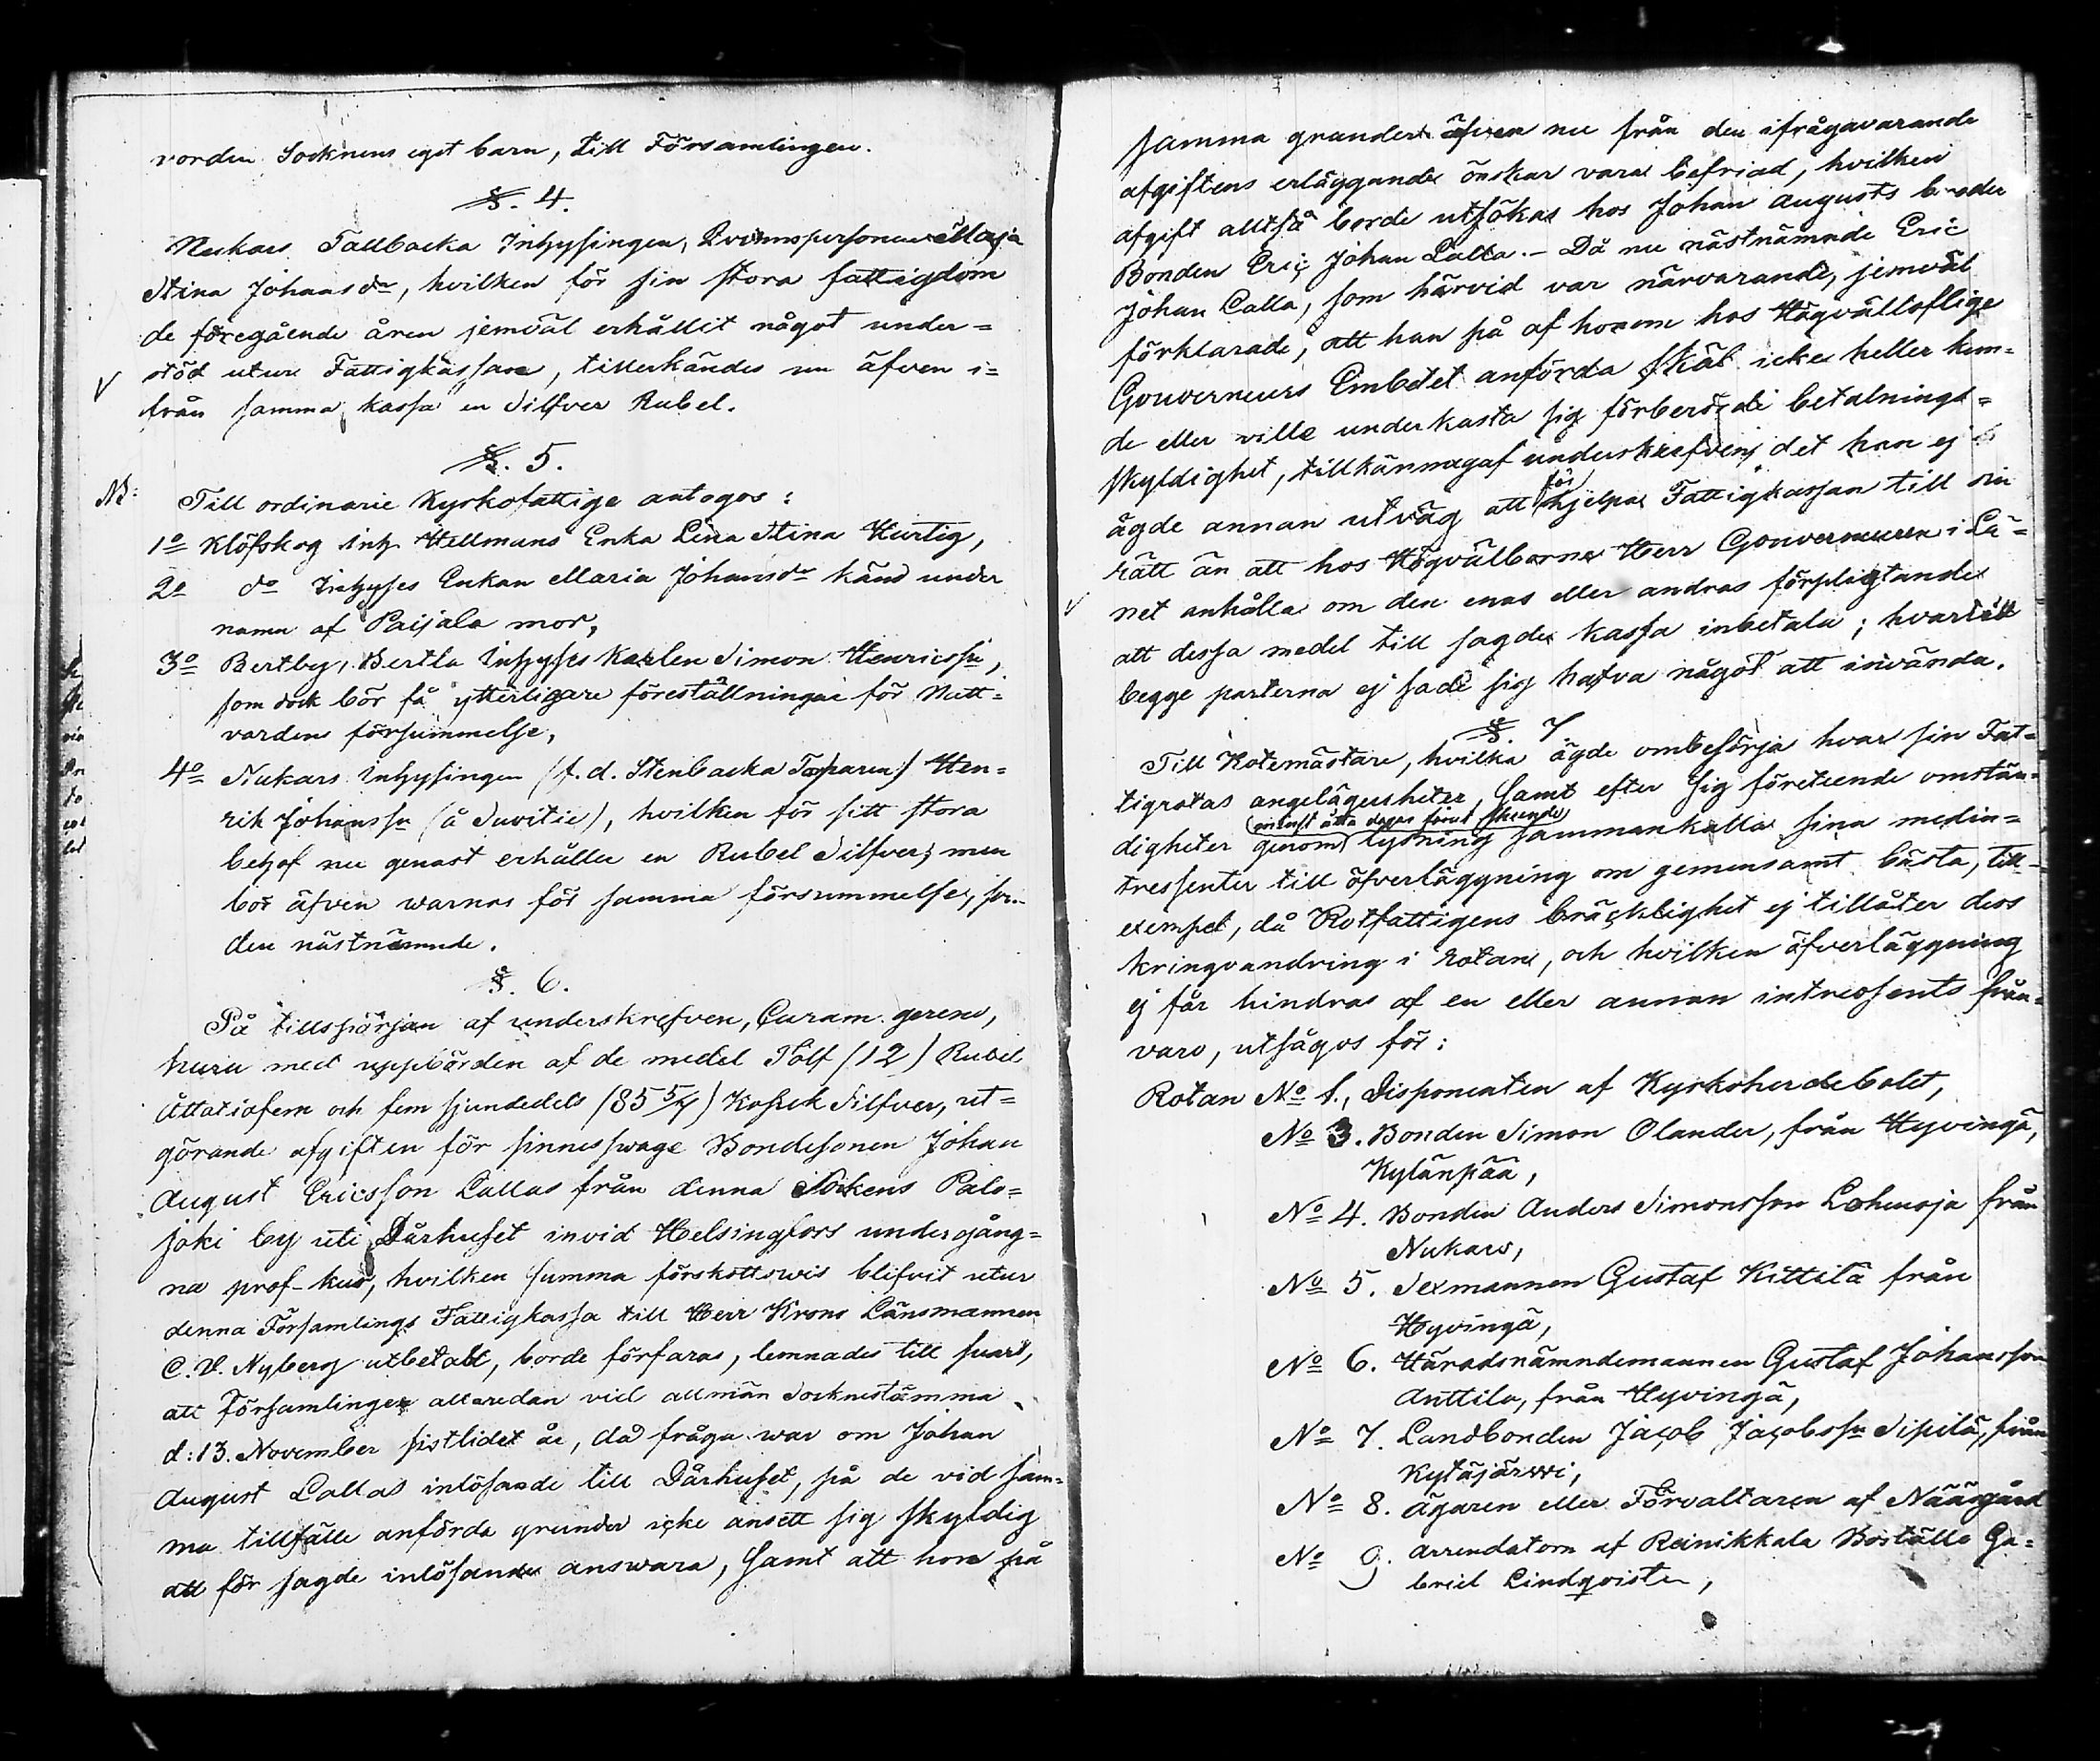 vorden Socknens eget barn, till Församlingen.
§. 4.
Nukars Tallbacka Inhysingen, Qvinnspersonen Maja
Stina Johansdr, hvilken för sin stora fattigdom
de föregående åren jemväl erhållit något under=
stöd utur Fattigkassan, tillerkändes nu äfven i=
från samma kassa en Silfver Rubel.
§. 5.
NB: Till ordinarie Kyrkofattige antogos:
1o Klöfskog Inh. Hellmans Enka Lina Stina Hurtig,
2o do Inhyses Enkan Maria Johansdr känd under
namn af Paijala mor,
3o Bertby, Bertla Inhyses Karlen Simon Henricssn,
som dock bör få ytterligare föreställningar för Natt=
vardens försummelse,
4o Nukars Inhysingen (f.d. Stenbacka Torparen) Hen=
rik Johanssn (å Suvitie), hvilken för sitt stora
behof nu genast erhåller en Rubel Silfver; men
bör äfven warnas för samma försummelse, som
den nästnämnde.
§. 6.
På tillspörjan af underskrefven, Curam gerens,
huru med uppbörden af de medel Tolf (12) Rubel
Åttatiofem och fem sjundedels (85 5/7) Kopek Silfver, ut=
görande afgiften för sinnesswage Bondesonen Johan
August Ericsson Lallas från denna Sockens Palo=
joki by uti Dårhuset invid Helsingfors undergång=
na prof-kur, hvilken summa förskottswis blifvit utur
denna Församlings Fattigkassa till Herr Krono Länsmannen
C. V. Nyberg utbetalt, borde förfaras, lemnades till svars,
att Församlingen allaredan vid allmän Socknestämma
d: 13. November sistlidet år, då fråga war om Johan
August Lallas inlösande till Dårhuset, på de vid sam=
ma tillfälle anförda grunder icke ansett sig skyldig
att för sagde inlösande answara, samt att hon på
samma grunder äfven nu från den ifrågavarande
afgiftens erläggande önskar vara befriad, hvilken
afgift alltså borde utsökas hos Johan Augusts broder
Bonden Eric Johan Lalla. – Då nu nästnämnde Eric
Johan Lalla, som härvid var närvarande, jemväl
förklarade, att han på af honom hos Högvälloflige
Gouverneurs Embetet anförda skäl icke heller kun=
de eller ville underkasta sig förberörde betalnings=
skyldighet, tillkännagaf underskrefven, det han ej
ägde annan utväg att för hjelpa Fattigkassan till sin
rätt än att hos Högvälborne Herr Gouverneuren i Lä=
net anhålla om den enas eller andras förpligtande
att dessa medel till sagde kassa inbetala; hvartill
begge parterna ej sade sig hafva något att invända.
§. 7
Till Rotemästare, hvilka ägde ombesörja hvar sin Fat=
tigrotas angelägenheter, samt efter sig företeende omstän=
(minst åtta dagar förut skeende)
digheter genom lysning sammankalla sina medin=
tressenter till öfverläggning om gemensamt bästa, till
exempel, då Rotfattigens bräcklighet ej tillåter dess
kringvandring i rotan, och hvilken öfverläggning
ej får hindras af en eller annan intressents från=
varo, utsågos för:
Rotan No 1., Disponenten af Kyrkoherdebolet,
No 3. Bonden Simon Olander, från Hyvingä,
Kylänpää,
No 4. Bonden Anders Simonsson Lohenoja från
Nukars,
No 5. Sexmannen Gustaf Kittilä från
Hyvingä,
No 6. Häradsnämndemannen Gustaf Johansson
Anttila, från Hyvingä,
No 7. Landbonden Jacob Jacobssn Sipilä, från
Kytäjärwi,
No 8. ägaren eller Förvaltaren af Näärgård
No 9. arrendatorn af Reinikkala Boställe Ga=
briel Lindqvister,